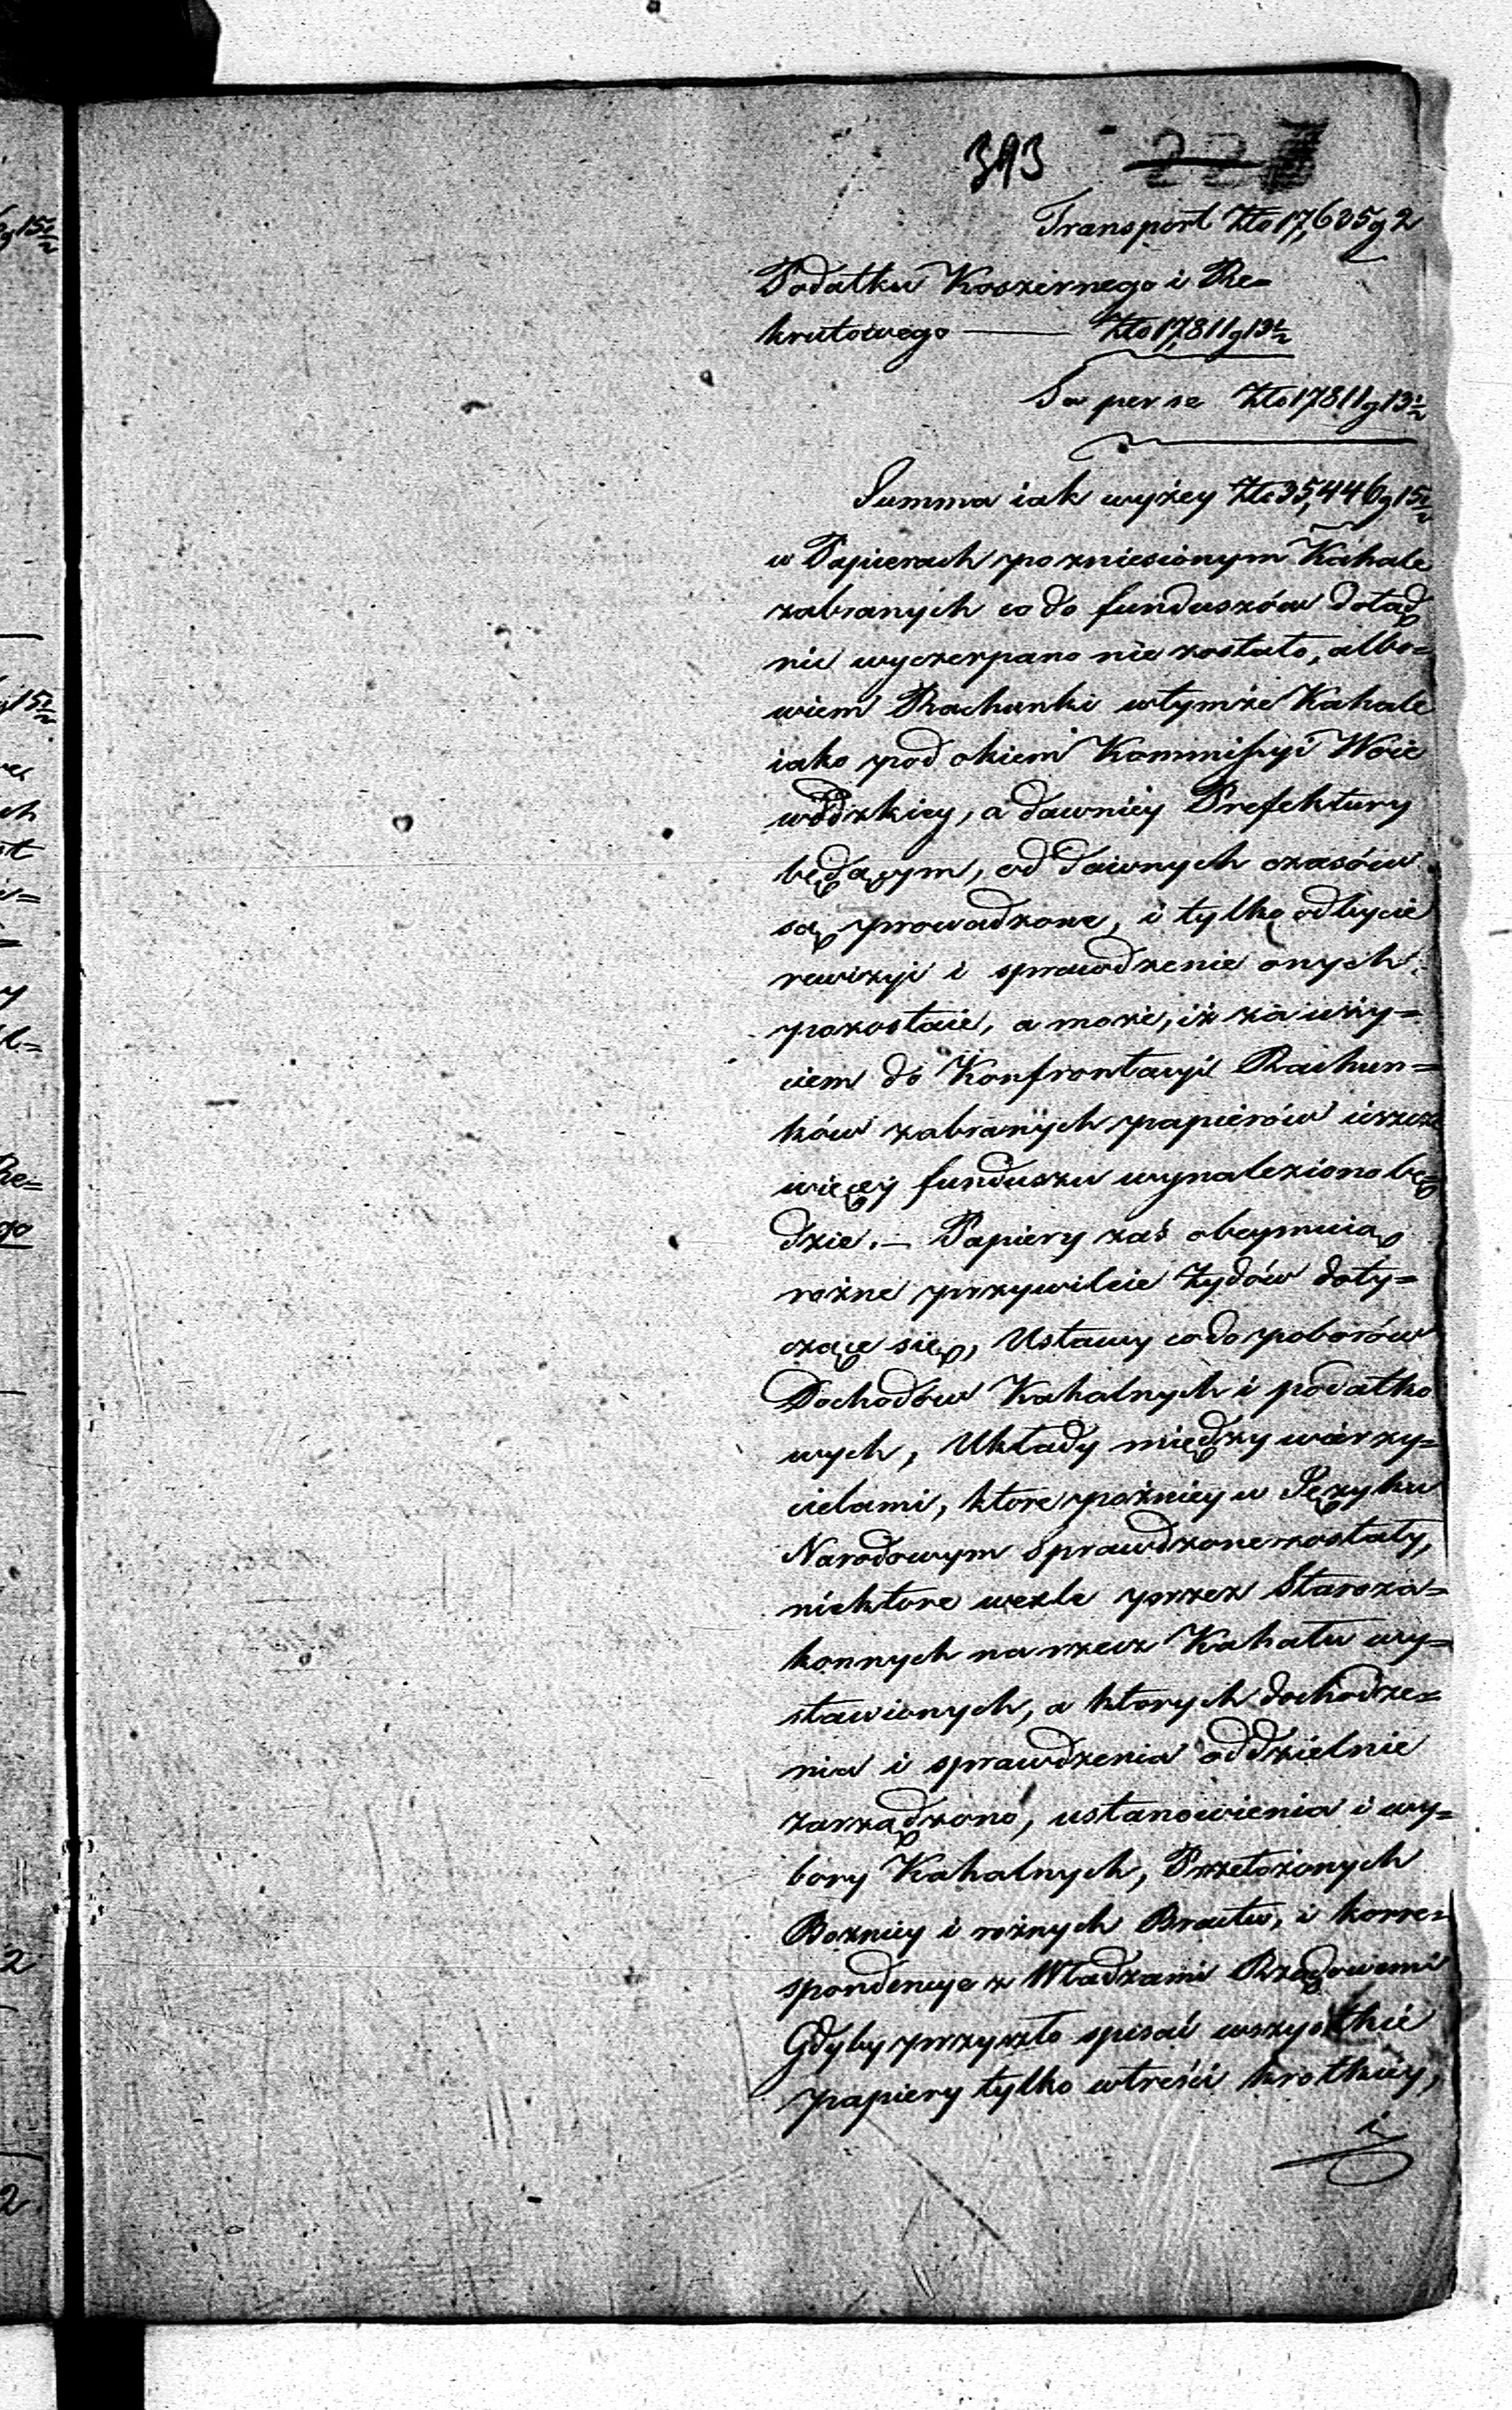 393
Transport Złо 17,635 g 2
Podatku Koszernego i Re-
krutowego — Zło 17,811 g 13 1/2
Sa per se Zło 17811 g 13 1/2
Summa iak wyżey Zło 35,446 g 15 1/2
w Papierach po zniesionym Kahale
zabranych co do funduszów dotąd
nic wyczerpano nie zostało, albo=
wiem Rachunki w tymże Kahale
iako pod okiem Kommissyi Woie
wódzkiey, a dawniey Prefektury
będącym, od dawnych czasów
są prowadzone, i tylko odbycie
rewizyi i sprawdzenie onych
pozostaie, a może, iż za uży=
ciem do Konfrontacyi Rachun=
ków zabranych papierów ieszcze
więcey funduszu wynaleziono bę=
dzie. — Papiery zaś obeymuią
rożne przywileie Żydów doty=
czące się, Ustawy co do poborów
Dochodów Kahalnych i podatko
wych, Układy między wierzy=
cielami, ktore pożniey w Języku
Narodowym sprawdzone zostały,
niektore wexle przez Staroza=
konnych na rzecz Kahału wy=
stawionych, a ktorych dochodze=
nia i sprawdzenia oddzielnie
zarządzono, ustanowienia i wy=
bory Kahalnych, Przełożonych
Bożnicy i rożnych Bractw, i korre=
spondencye z Władzami Rządowemi
Gdyby przyszło spisać wszystkie
papiery tylko w treści krotkiey,
i